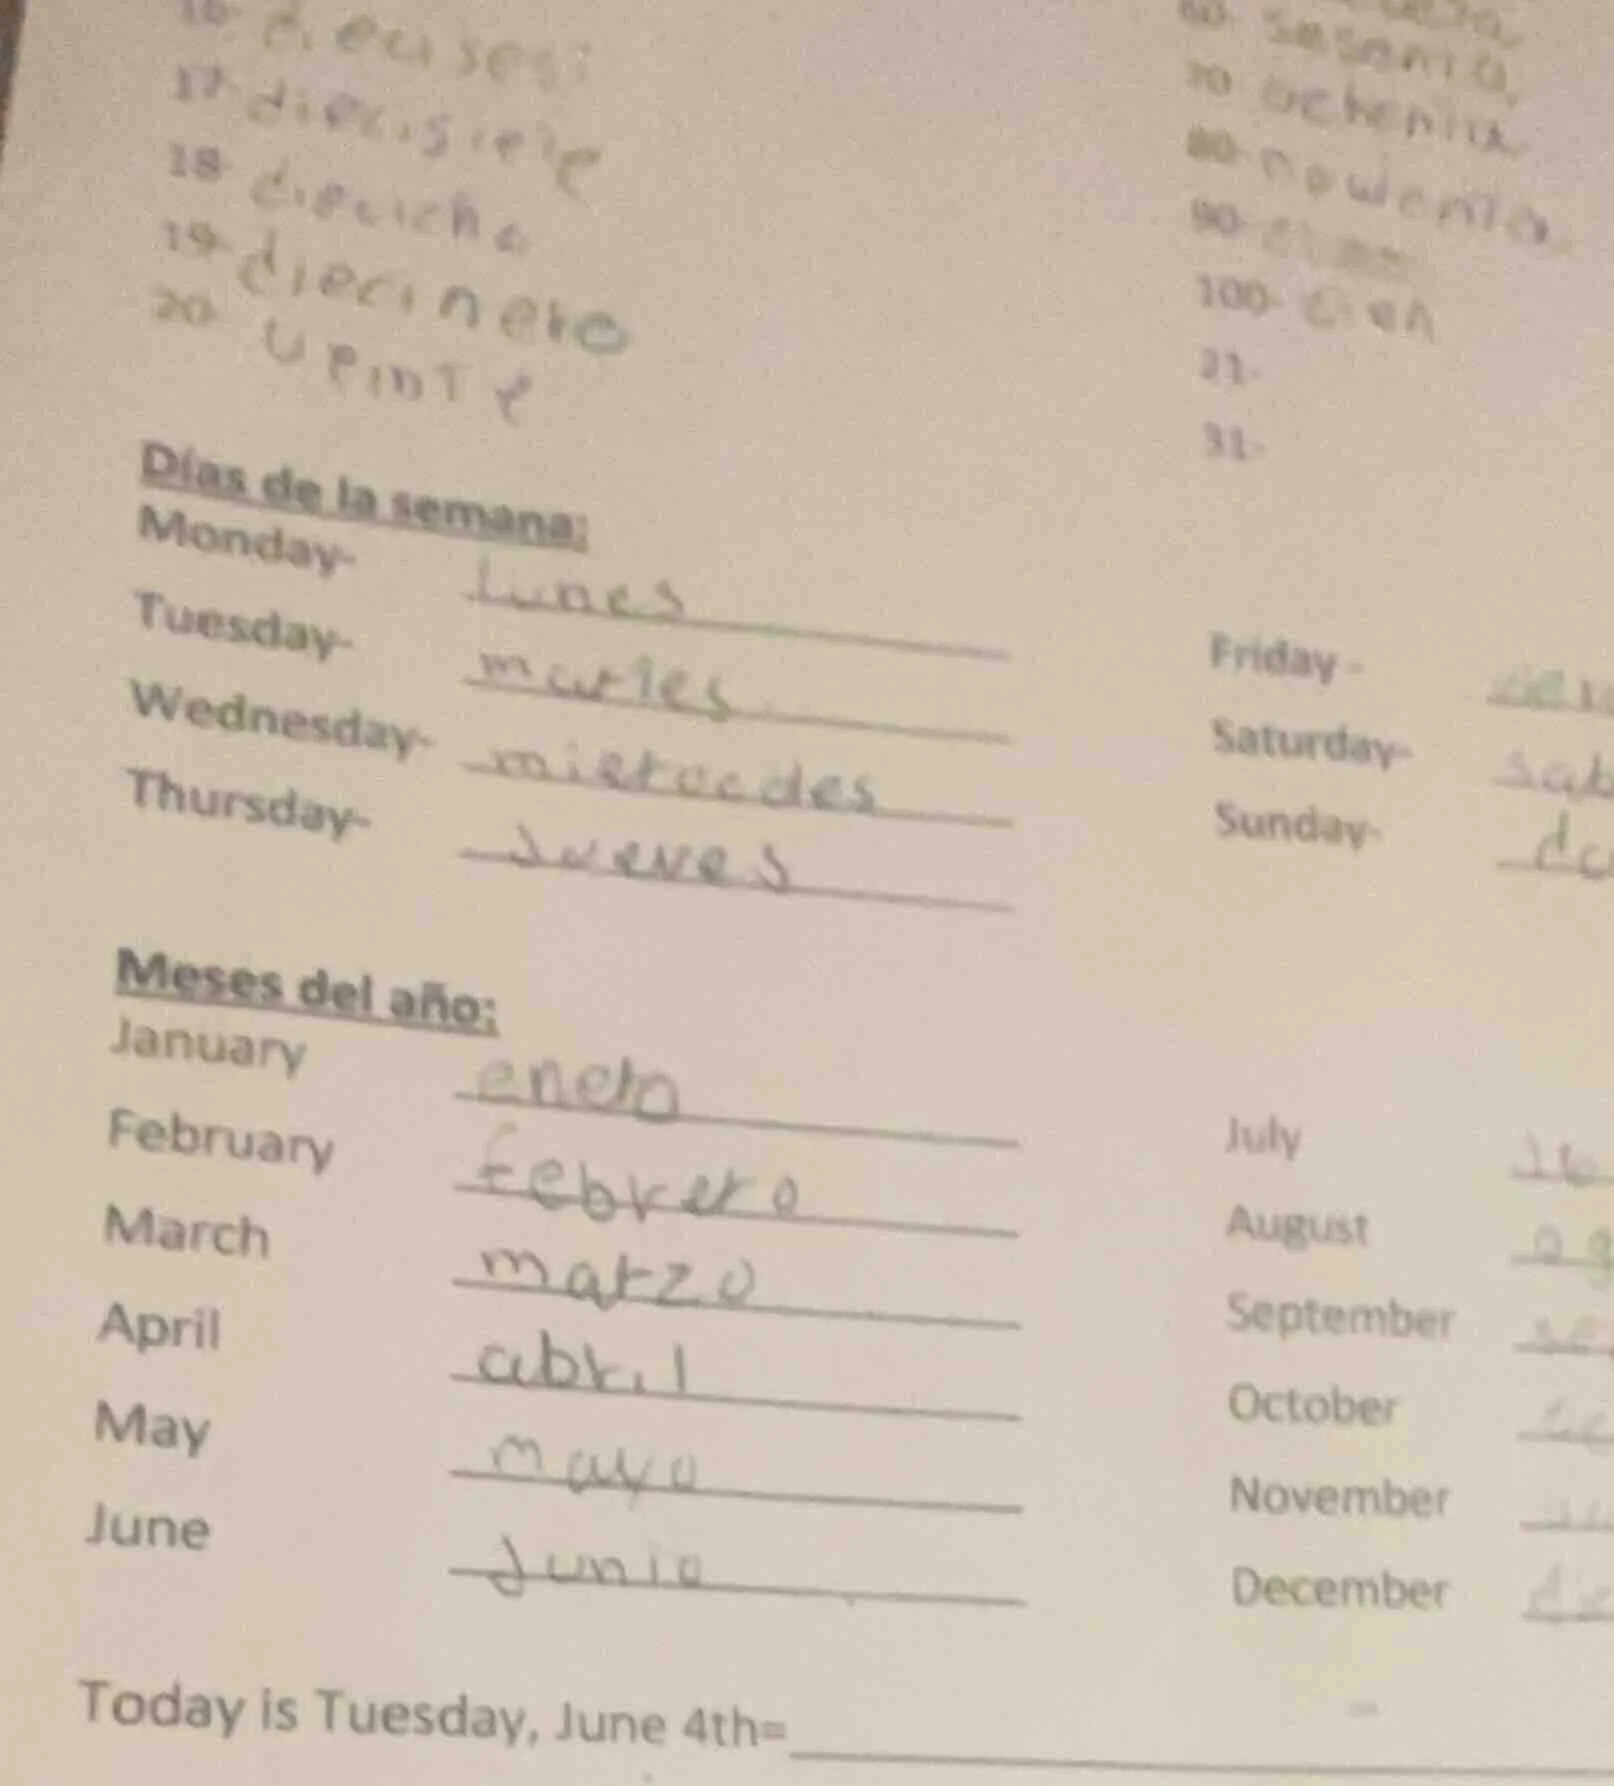 17- diecisiete
18- diecicho
19- diecinero
20- veinte
60- sesenta
70 ochenta
80- nowenta
90-
100- cien
21-
31-
Días de la semana:
Monday- lunes
Tuesday- martes
Wednesday- miercodes
Thursday- Jueves
Friday -
Saturday- sab
Sunday- do
Meses del año:
January enero
February febrero
March marzo
April abril
May mayo
June Junio
July
August ag
September
October
November
December
Today is Tuesday, June 4th=